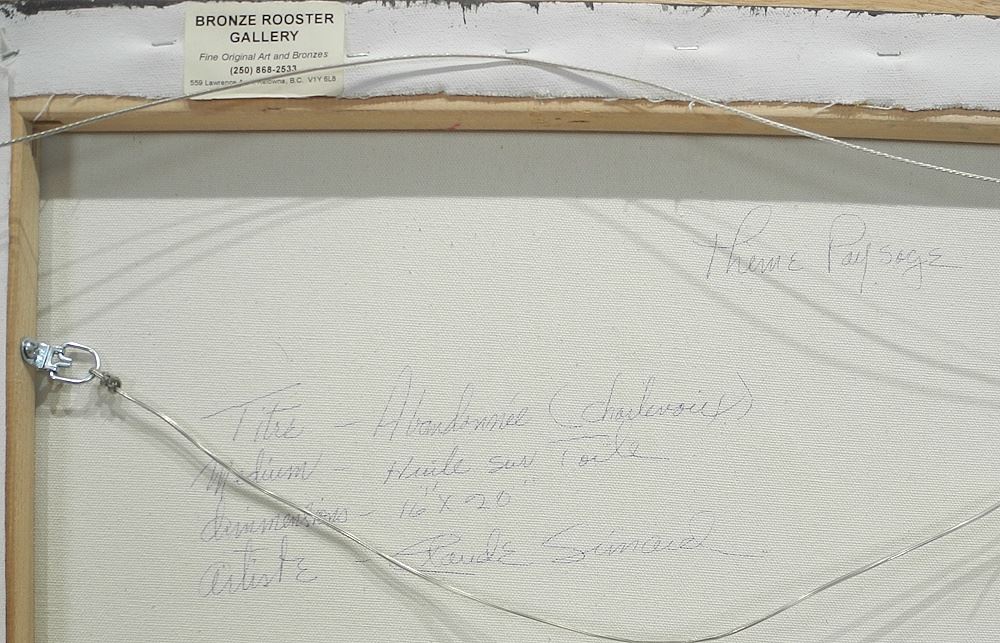 BRONZE ROOSTER
GALLERY
Fine Original Art and Bronzes
(250) 868-2533
559 Lawrence Kelowna, B.C. V1Y 6L8
Theme Paysage
Titre - Abandonnée (Charlevoix)
Medium - Huile sur Toile
dimmensions - 16" X 20"
artiste - Simard